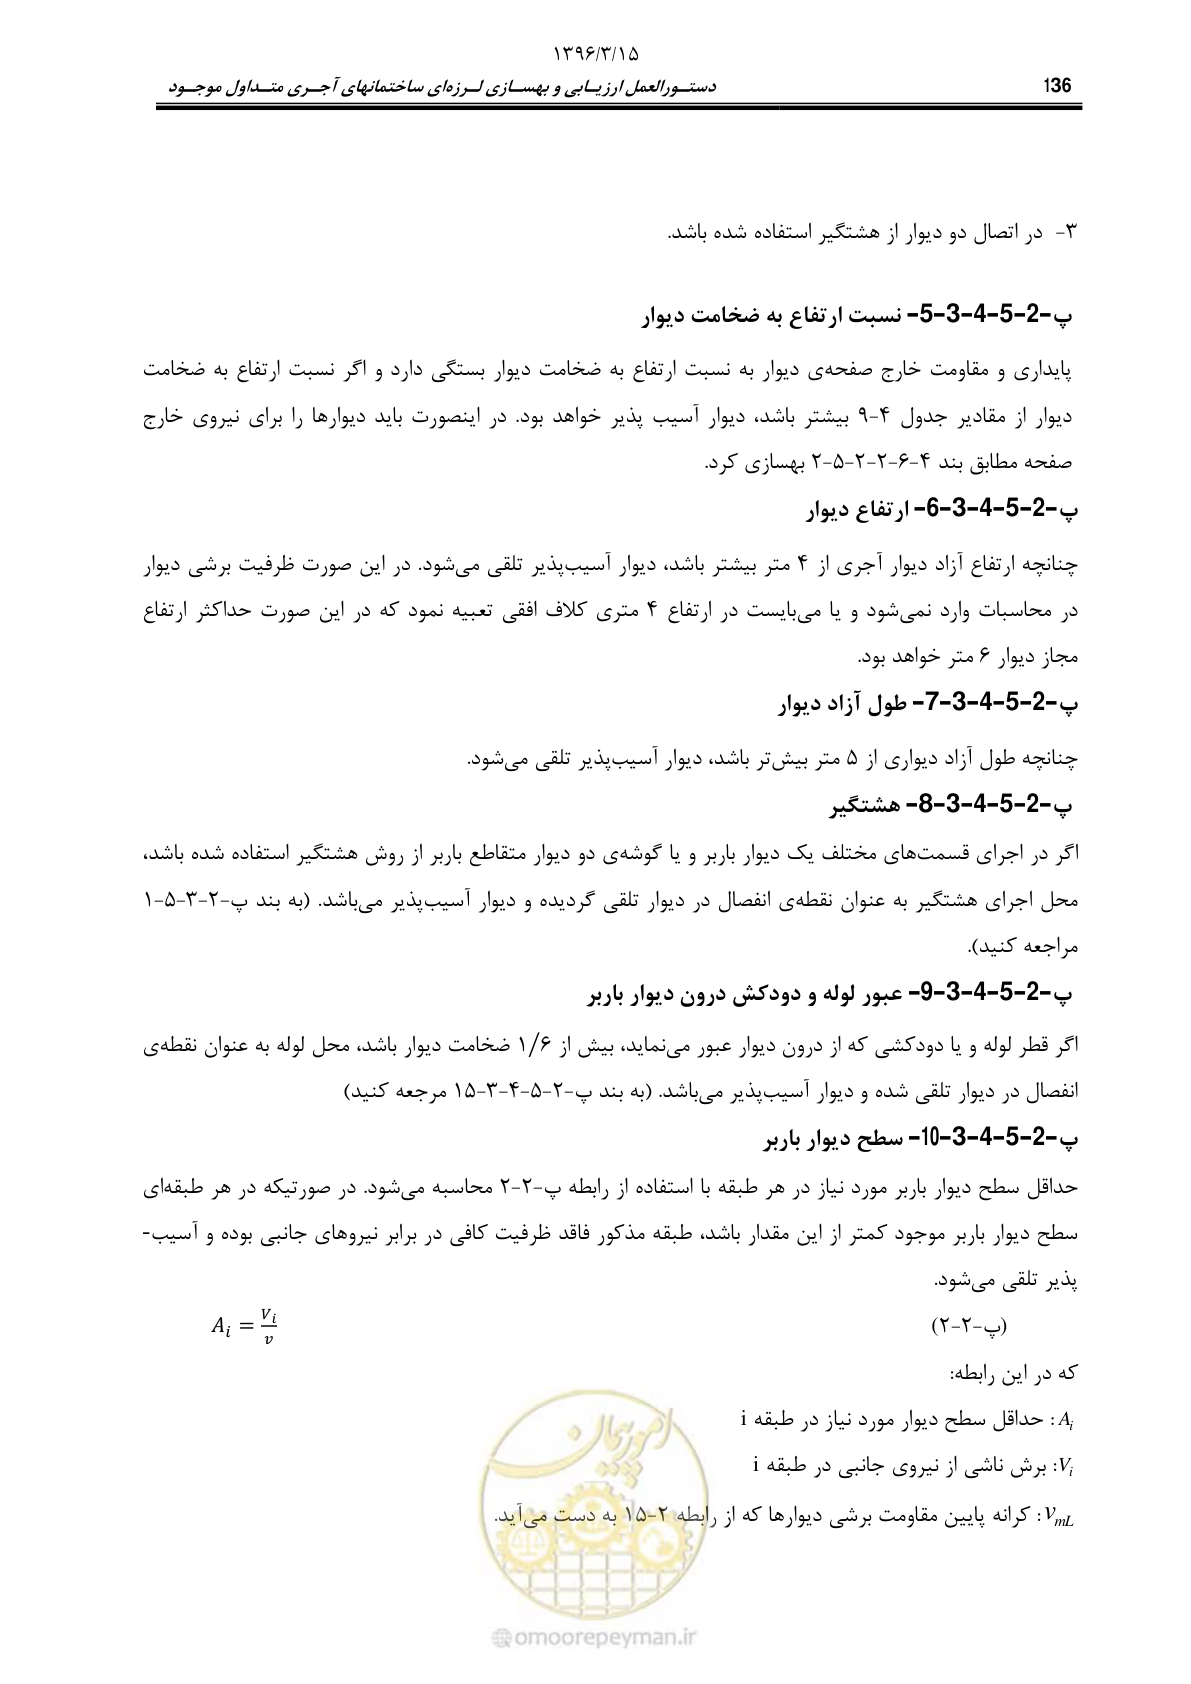 ۱۳۹۶/۳/۱۵
136 دستورالعمل ارزیابی و بهسازی لرزه‌ای ساختمانهای آجری متداول موجود
۳- در اتصال دو دیوار از هشتگیر استفاده شده باشد.
پ-2-5-4-3-5- نسبت ارتفاع به ضخامت دیوار
پایداری و مقاومت خارج صفحه‌ی دیوار به نسبت ارتفاع به ضخامت دیوار بستگی دارد و اگر نسبت ارتفاع به ضخامت
دیوار از مقادیر جدول ۴-۹ بیشتر باشد، دیوار آسیب پذیر خواهد بود. در اینصورت باید دیوارها را برای نیروی خارج
صفحه مطابق بند ۴-۶-۲-۲-۵-۲ بهسازی کرد.
پ-2-5-4-3-6- ارتفاع دیوار
چنانچه ارتفاع آزاد دیوار آجری از ۴ متر بیشتر باشد، دیوار آسیب‌پذیر تلقی می‌شود. در این صورت ظرفیت برشی دیوار
در محاسبات وارد نمی‌شود و یا می‌بایست در ارتفاع ۴ متری کلاف افقی تعبیه نمود که در این صورت حداکثر ارتفاع
مجاز دیوار ۶ متر خواهد بود.
پ-2-5-4-3-7- طول آزاد دیوار
چنانچه طول آزاد دیواری از ۵ متر بیش‌تر باشد، دیوار آسیب‌پذیر تلقی می‌شود.
پ-2-5-4-3-8- هشتگیر
اگر در اجرای قسمت‌های مختلف یک دیوار باربر و یا گوشه‌ی دو دیوار متقاطع باربر از روش هشتگیر استفاده شده باشد،
محل اجرای هشتگیر به عنوان نقطه‌ی انفصال در دیوار تلقی گردیده و دیوار آسیب‌پذیر می‌باشد. (به بند پ-۲-۳-۵-۱
مراجعه کنید).
پ-2-5-4-3-9- عبور لوله و دودکش درون دیوار باربر
اگر قطر لوله و یا دودکشی که از درون دیوار عبور می‌نماید، بیش از ۱/۶ ضخامت دیوار باشد، محل لوله به عنوان نقطه‌ی
انفصال در دیوار تلقی شده و دیوار آسیب‌پذیر می‌باشد. (به بند پ-۲-۵-۴-۳-۱۵ مرجعه کنید)
پ-2-5-4-3-10- سطح دیوار باربر
حداقل سطح دیوار باربر مورد نیاز در هر طبقه با استفاده از رابطه پ-۲-۲ محاسبه می‌شود. در صورتیکه در هر طبقه‌ای
سطح دیوار باربر موجود کمتر از این مقدار باشد، طبقه مذکور فاقد ظرفیت کافی در برابر نیروهای جانبی بوده و آسیب-
پذیر تلقی می‌شود.
(پ-۲-۲) A_i = V_i / v
که در این رابطه:
A_i : حداقل سطح دیوار مورد نیاز در طبقه i
V_i: برش ناشی از نیروی جانبی در طبقه i
v_mL: کرانه پایین مقاومت برشی دیوارها که از رابطه ۲-۱۵ به دست می‌آید.
امور پیمان
omoorepeyman.ir